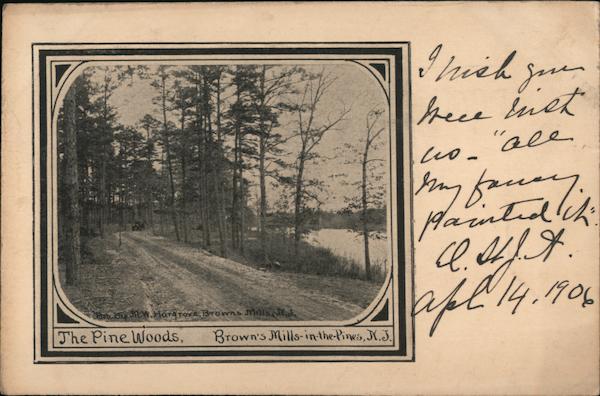 I wish you
were with
us - "all
my fancy
painted it".
Apl 14, 1906
Pub. By M.W. Hargrove, Browns Mills, N.J.
The Pine Woods. Brown's Mills-in-the-Pines, N.J.